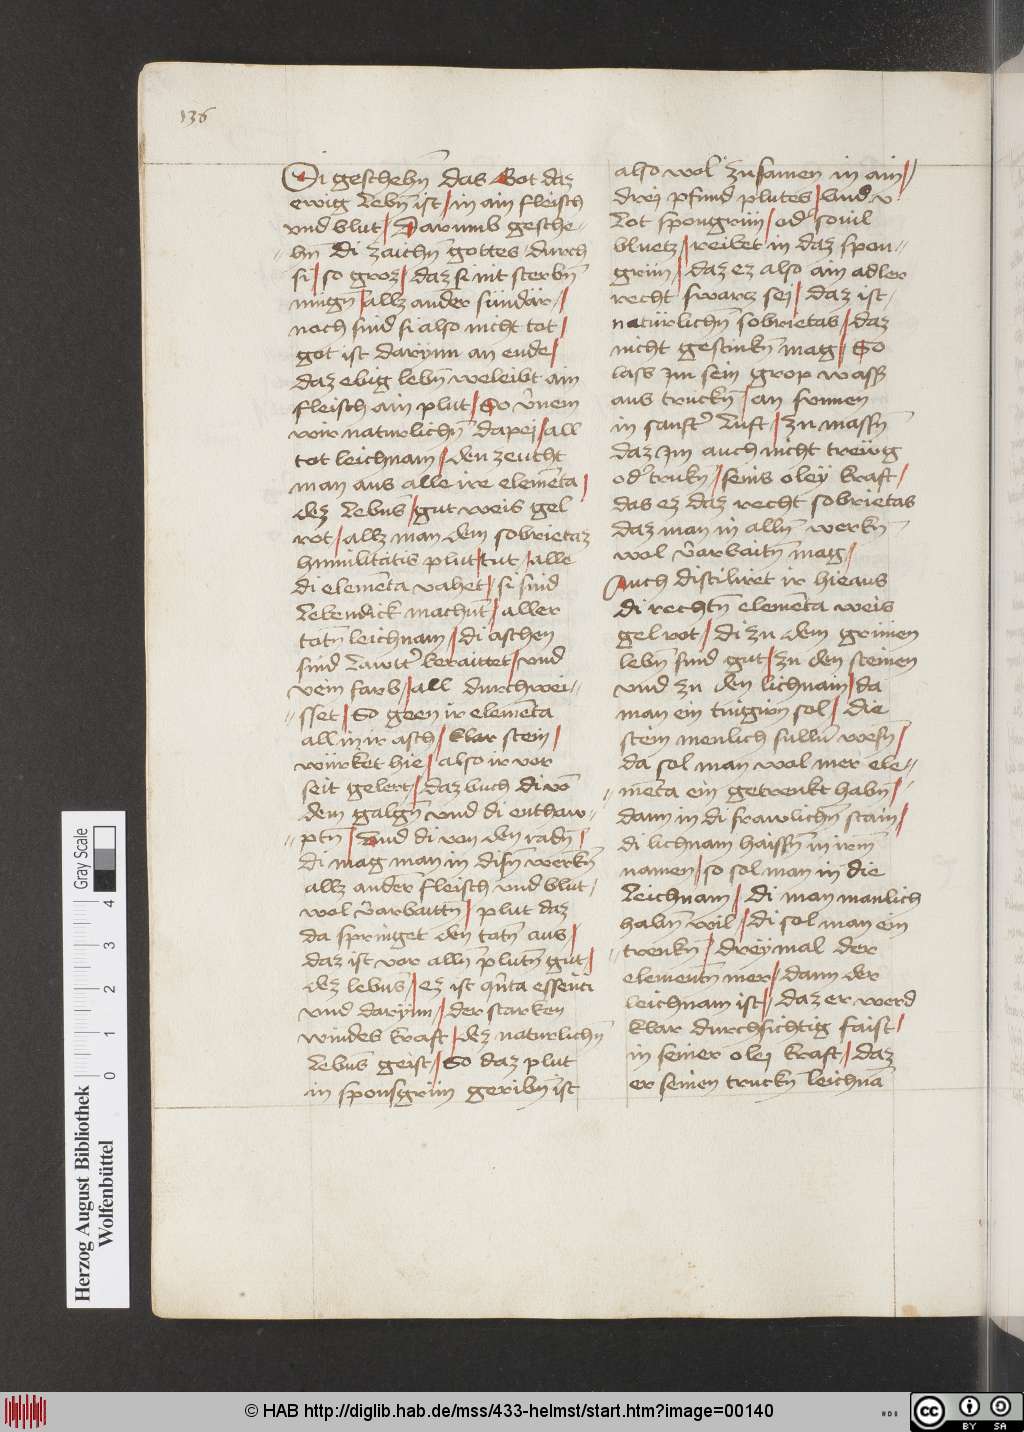 136
Di geschehn̄ das Got daz
ewig lebn̄ ist / in ain fleisch
vnd blut / Darumb gesche-
-hn̄ di zaichn̄ gottes durch
si / so groz / daz si nit sterbn̄
mugn̄ / allz ander sündär /
noch sind si also nicht tot /
got ist darÿnn an ende /
daz ebig lebn̄ weleibt ain
fleisch ain plut / So v̄nem
wir naturlichn̄ dapej / all
tot leichnam / den zeucht
man aus alle ire elemēta /
dez lebens / gut weis gel
rot / allz man dem sobrietaz
humilitatis plut tut / alle
di elemēta vahet / si sind
lebendick machent / aller
totn̄ leichnam / di aschen
sind lawtr̄ beraittet / vnd
vein farb / all durchwei-
-sset / So geen ir elemēta
all in ir asch / klar stein /
würket hie / also ir vor
seit gelert / daz buch di vō
dem galgn̄ vnd di enthaw-
-ptn̄ / vnd di von den radn̄ /
di mag man in disn̄ werkn̄
allz ander fleisch vnd blut
wol v̄arbaittn̄ / plut daz
da springet den totn̄ aus /
daz ist vor alln̄ plutn̄ gut /
dez lebens / ez ist qn̄ta essēci
vnd darÿnn / der starken
windes kraft / dez naturlichn̄
lebens geist / So daz plut
in sponsgrün geribn̄ ist
also wol zusamen in ain /
drej pfund plutes / vnd v
lot spongrün / odr̄ souil
bluetz / reibet in daz spon-
grün / daz ez also ain adler
recht swarz sej / daz ist
natürlichn̄ sobrietas / daz
nicht gestinkn̄ mag / So
lass Im sein grop wass̄
aus truckn̄ / an sunnen
in sanftr̄ luft / zu mass̄n
daz Im auch nicht treÿg
odr̄ trukn̄ / seins oleÿ kraft /
das ez daz recht sobrietas
daz man in alln̄ werkn̄
wol v̄arbaitn̄ mag /
Auch distiliret ir hieaus
di rechtn̄ elemēta weis
gel rot / di zu dem grünen
lebn̄ sind gut / zu den steinen
vnd zu den lichnam / da
man ein tingirn sol / die
stein menlich sulln̄ wesn̄ /
da sol man wol mer ele-
-mēta ein getrenkt habn̄ /
dann in di frawlichn̄ stain /
di lichnam haissn̄ in irem̄
namen / so sol man in die
leichnam / di man manlich
habn̄ wil / di sol man ein
-trenkn̄ / dreÿmal der
elementn̄ mer / dann der
leichnam ist / daz er werd
klar durchsichtig faist /
in seiner olej kraft / daz
er seinen truckn̄ leichnā
Herzog August Bibliothek
Wolfenbüttel
0 1 2 3 4
Gray Scale
© HAB http://diglib.hab.de/mss/433-helmst/start.htm?image=00140
HAB
cc BY SA